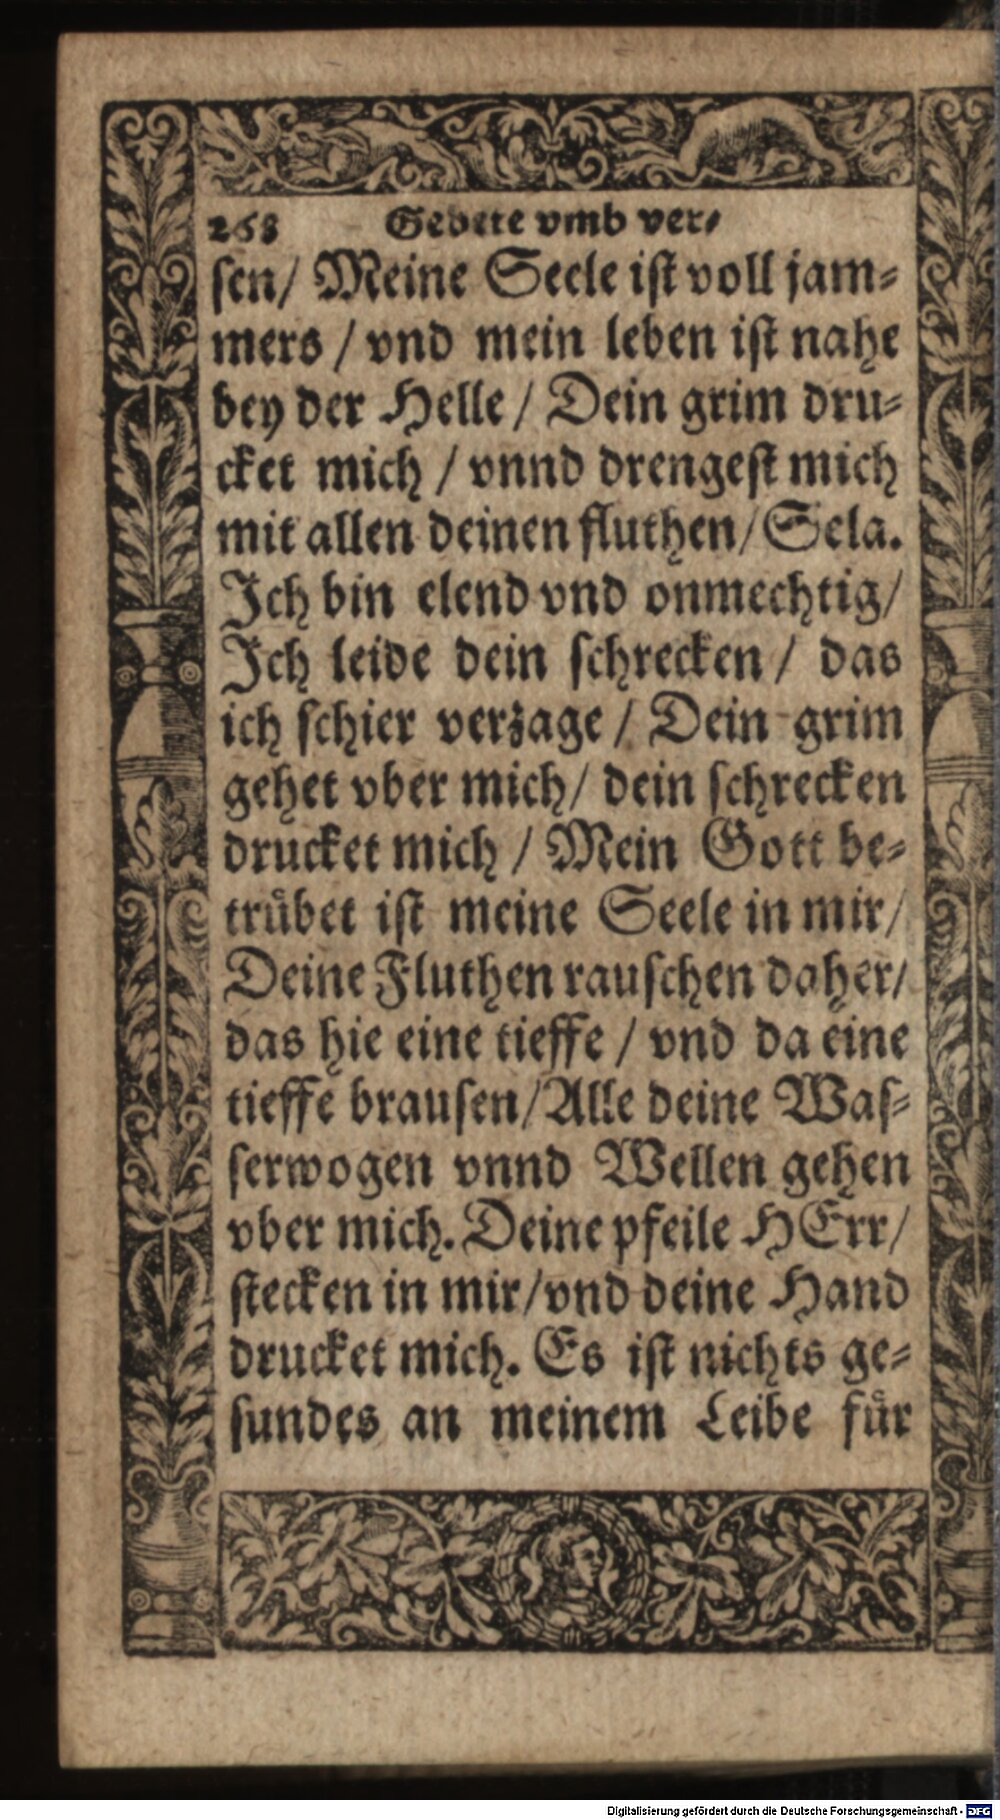 268 Gebete vmb ver⸗
ſen/ Meine Seele iſt voll jam⸗
mers / vnd mein leben iſt nahe
bey der Helle / Dein grim dru⸗
cket mich / vnnd drengeſt mich
mit allen deinen fluthen/ Sela.
Ich bin elend vnd onmechtig/
Ich leide dein ſchrecken / das
ich ſchier verzage / Dein grim
gehet vber mich/ dein ſchrecken
drucket mich / Mein Gott be⸗
truͤbet iſt meine Seele in mir/
Deine Fluthen rauſchen daher/
das hie eine tieffe / vnd da eine
tieffe brauſen/ Alle deine Waſ⸗
ſerwogen vnnd Wellen gehen
vber mich. Deine pfeile HErr/
ſtecken in mir/ vnd deine Hand
drucket mich. Es iſt nichts ge⸗
ſundes an meinem Leibe fuͤr
Digitalisierung gefördert durch die Deutsche Forschungsgemeinschaft - DFG